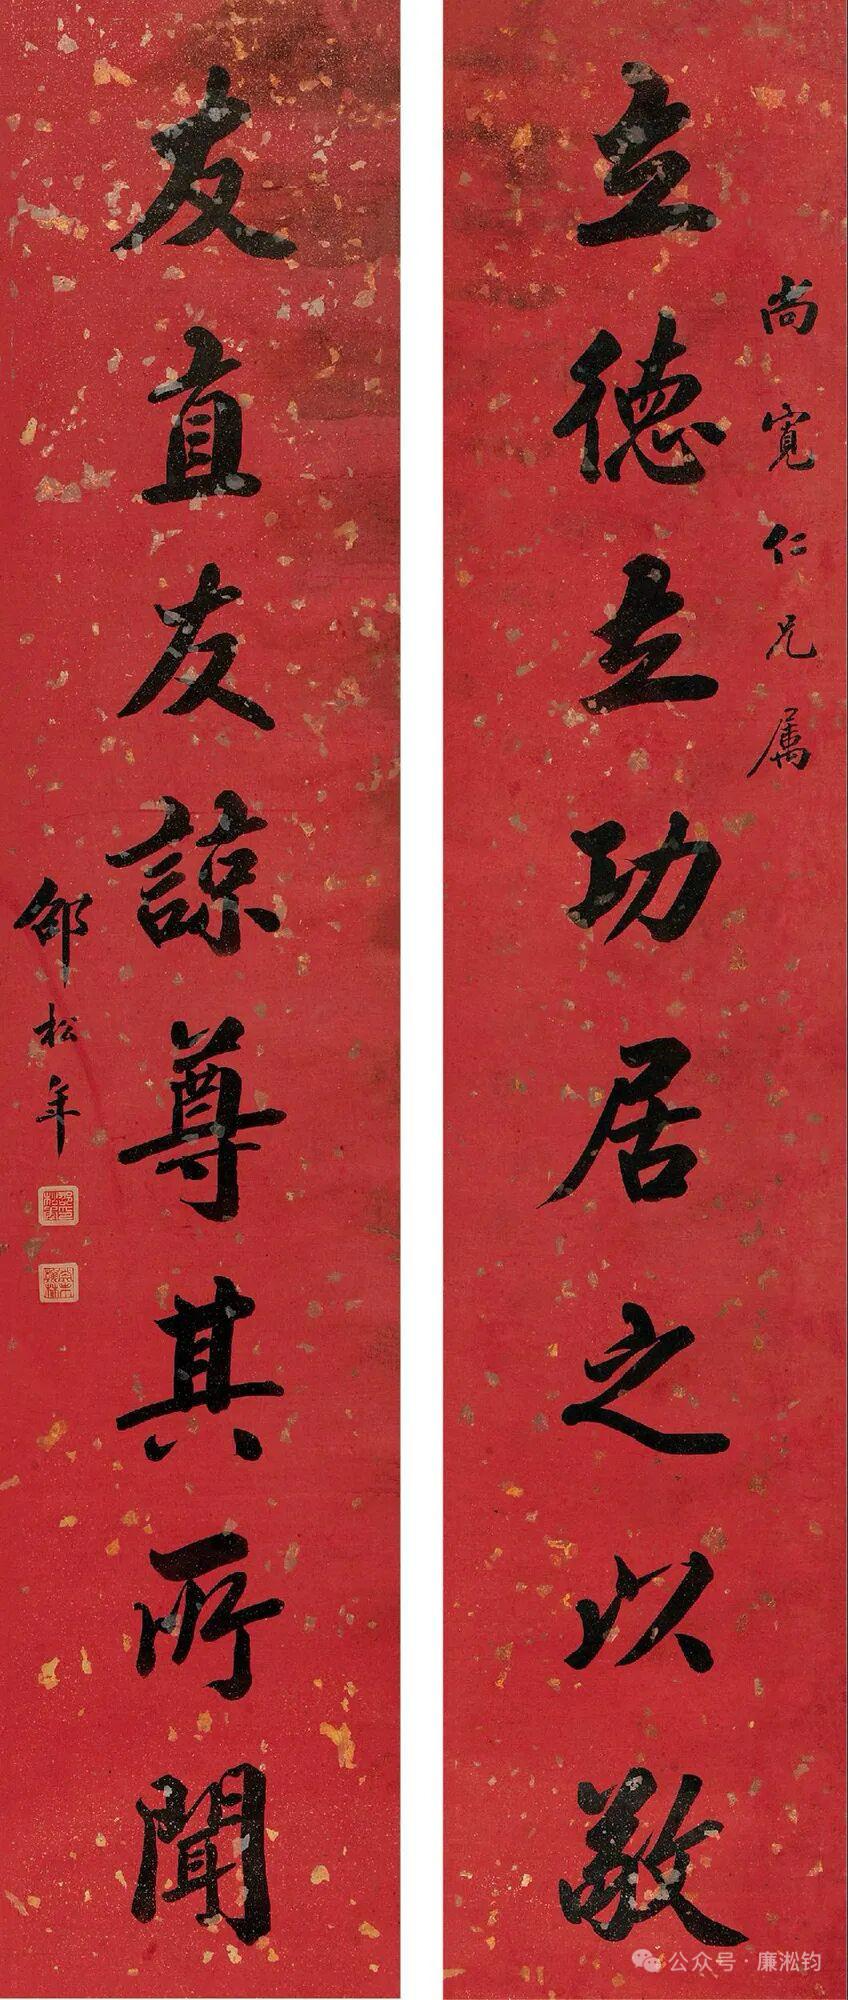 尚寬仁兄属
立德立功居之以敬
友直友諒尊其所聞
邵松年
公众号·廉淞钧